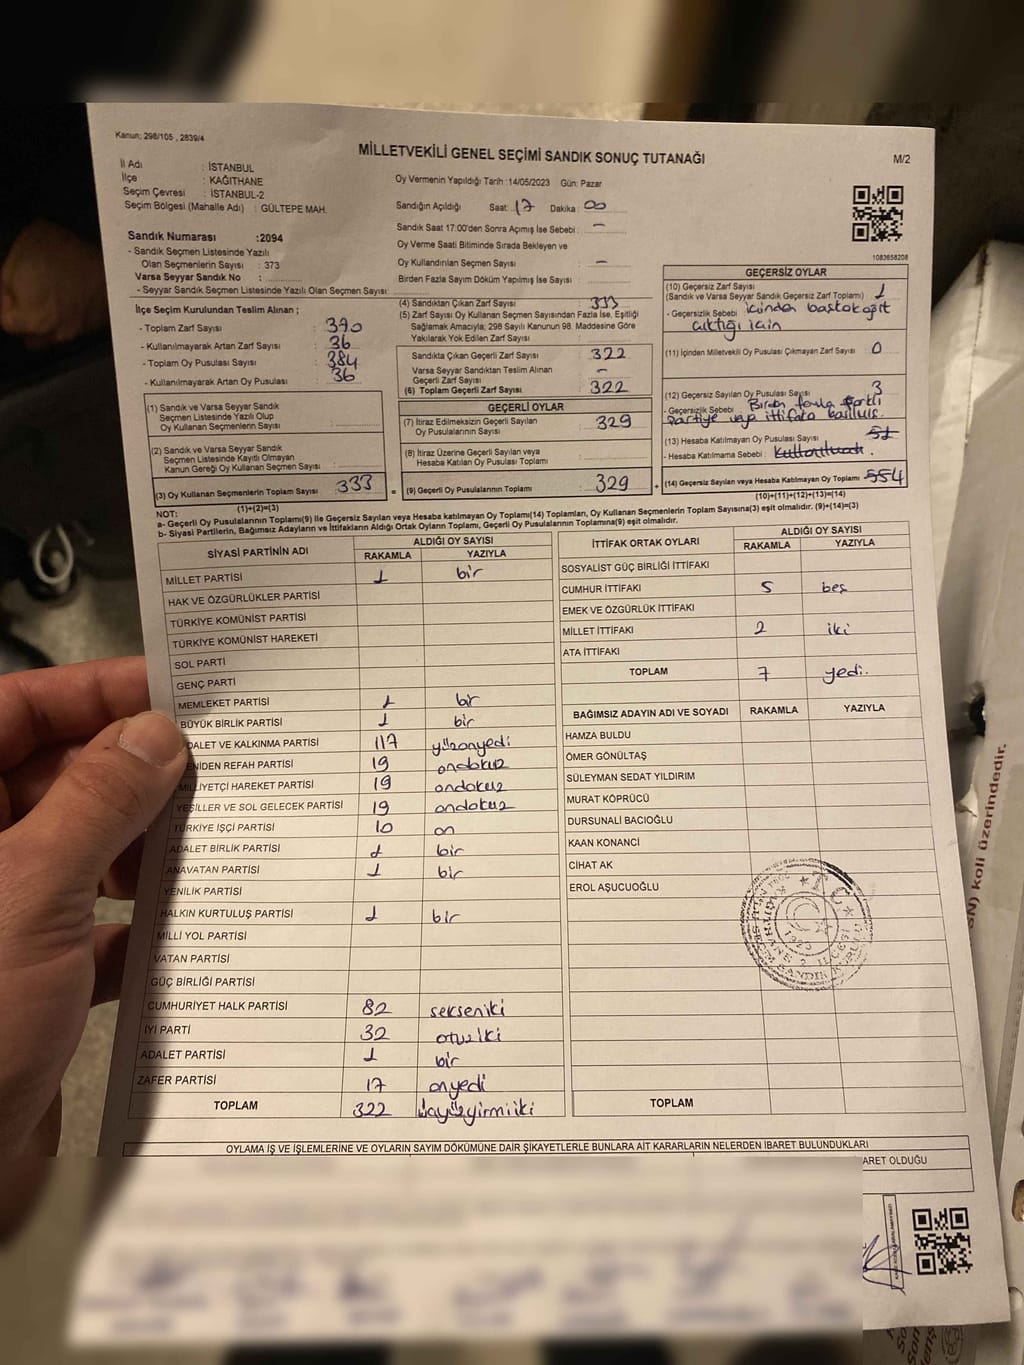 Kanun: 298/105 , 2839/4
MİLLETVEKİLİ GENEL SEÇİMİ SANDIK SONUÇ TUTANAĞI
M/2
İl Adı : İSTANBUL
İlçe : KAĞITHANE
Seçim Çevresi : İSTANBUL-2
Seçim Bölgesi (Mahalle Adı) : GÜLTEPE MAH.
Sandık Numarası :2094
- Sandık Seçmen Listesinde Yazılı
Olan Seçmenlerin Sayısı : 373
Varsa Seyyar Sandık No :
- Seyyar Sandık Seçmen Listesinde Yazılı Olan Seçmen Sayısı:
Oy Vermenin Yapıldığı Tarih :14/05/2023 Gün: Pazar
Sandığın Açıldığı Saat: 17 Dakika : 00
Sandık Saat 17:00'den Sonra Açımış İse Sebebi : -
Oy Verme Saati Bitiminde Sırada Bekleyen ve
Oy Kullandırılan Seçmen Sayısı : -
Birden Fazla Sayım Döküm Yapılmış İse Sayısı :
1083658208
İlçe Seçim Kurulundan Teslim Alınan ;
- Toplam Zarf Sayısı : 370
- Kullanılmayarak Artan Zarf Sayısı : 36
- Toplam Oy Pusulası Sayısı : 384
- Kullanılmayarak Artan Oy Pusulası : 36
(1) Sandık ve Varsa Seyyar Sandık
Seçmen Listesinde Yazılı Olup
Oy Kullanan Seçmenlerin Sayısı :
(2) Sandık ve Varsa Seyyar Sandık
Seçmen Listesinde Kayıtlı Olmayan
Kanun Gereği Oy Kullanan Seçmen Sayısı :
(3) Oy Kullanan Seçmenlerin Toplam Sayısı : 333
(1)+(2)=(3)
(4) Sandıktan Çıkan Zarf Sayısı : 333
(5) Zarf Sayısı Oy Kullanan Seçmen Sayısından Fazla İse, Eşitliği
Sağlamak Amacıyla; 298 Sayılı Kanunun 98. Maddesine Göre
Yakılarak Yok Edilen Zarf Sayısı :
Sandıkta Çıkan Geçerli Zarf Sayısı : 322
Varsa Seyyar Sandıktan Teslim Alınan
Geçerli Zarf Sayısı : -
(6) Toplam Geçerli Zarf Sayısı : 322
GEÇERLİ OYLAR
(7) İtiraz Edilmeksizin Geçerli Sayılan
Oy Pusulalarının Sayısı : 329
(8) İtiraz Üzerine Geçerli Sayılan veya
Hesaba Katılan Oy Pusulası Toplamı :
= (9) Geçerli Oy Pusulalarının Toplamı : 329 +
GEÇERSİZ OYLAR
(10) Geçersiz Zarf Sayısı
(Sandık ve Varsa Seyyar Sandık Geçersiz Zarf Toplamı) : 1
- Geçersizlik Sebebi : içinden başka kağıt
çıktığı için
(11) İçinden Milletvekili Oy Pusulası Çıkmayan Zarf Sayısı : 0
(12) Geçersiz Sayılan Oy Pusulası Sayısı : 3
- Geçersizlik Sebebi : Birden fazla farklı
partiye veya ittifaka basılmış.
(13) Hesaba Katılmayan Oy Pusulası Sayısı : 51
- Hesaba Katılmama Sebebi :
(14) Geçersiz Sayılan veya Hesaba Katılmayan Oy Toplamı : 554
(10)+(11)+(12)+(13)=(14)
NOT:
a- Geçerli Oy Pusulalarının Toplamı(9) ile Geçersiz Sayılan veya Hesaba katılmayan Oy Toplamı(14) Toplamları, Oy Kullanan Seçmenlerin Toplam Sayısına(3) eşit olmalıdır. (9)+(14)=(3)
b- Siyasi Partilerin, Bağımsız Adayların ve İttifakların Aldığı Ortak Oyların Toplamı, Geçerli Oy Pusulalarının Toplamına(9) eşit olmalıdır.
SİYASİ PARTİNİN ADI ALDIĞI OY SAYISI
RAKAMLA YAZIYLA
MİLLET PARTİSİ 1 bir
HAK VE ÖZGÜRLÜKLER PARTİSİ
TÜRKİYE KOMÜNİST PARTİSİ
TÜRKİYE KOMÜNİST HAREKETİ
SOL PARTİ
GENÇ PARTİ
MEMLEKET PARTİSİ 1 bir
BÜYÜK BİRLİK PARTİSİ 1 bir
ADALET VE KALKINMA PARTİSİ 117 yüzonyedi
YENİDEN REFAH PARTİSİ 19 ondokuz
MİLLİYETÇİ HAREKET PARTİSİ 19 ondokuz
YEŞİLLER VE SOL GELECEK PARTİSİ 19 ondokuz
TÜRKİYE İŞÇİ PARTİSİ 10 on
ADALET BİRLİK PARTİSİ 1 bir
ANAVATAN PARTİSİ 1 bir
YENİLİK PARTİSİ
HALKIN KURTULUŞ PARTİSİ 1 bir
MİLLİ YOL PARTİSİ
VATAN PARTİSİ
GÜÇ BİRLİĞİ PARTİSİ
CUMHURİYET HALK PARTİSİ 82 sekseniki
İYİ PARTİ 32 otuziki
ADALET PARTİSİ 1 bir
ZAFER PARTİSİ 17 onyedi
TOPLAM 322 üçyüzyirmiiki
İTTİFAK ORTAK OYLARI ALDIĞI OY SAYISI
RAKAMLA YAZIYLA
SOSYALİST GÜÇ BİRLİĞİ İTTİFAKI
CUMHUR İTTİFAKI 5 beş
EMEK VE ÖZGÜRLÜK İTTİFAKI
MİLLET İTTİFAKI 2 iki
ATA İTTİFAKI
TOPLAM 7 yedi.
BAĞIMSIZ ADAYIN ADI VE SOYADI RAKAMLA YAZIYLA
HAMZA BULDU
ÖMER GÖNÜLTAŞ
SÜLEYMAN SEDAT YILDIRIM
MURAT KÖPRÜCÜ
DURSUNALİ BACIOĞLU
KAAN KONANCİ
CİHAT AK
EROL AŞUCUOĞLU
TOPLAM
T.C.
1923
OYLAMA İŞ VE İŞLEMLERİNE VE OYLARIN SAYIM DÖKÜMÜNE DAİR ŞİKAYETLERLE BUNLARA AİT KARARLARIN NELERDEN İBARET BULUNDUKLARI
ARET OLDUĞU
SN) koli üzerindedir.